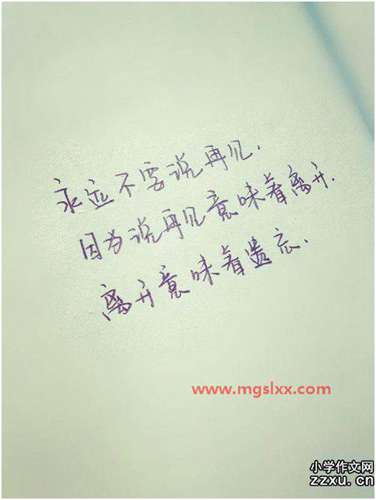 永远不要说再见.
因为说再见意味着离开.
离开意味着遗忘.
www.mgslxx.com
小学作文网
zzxu.cn